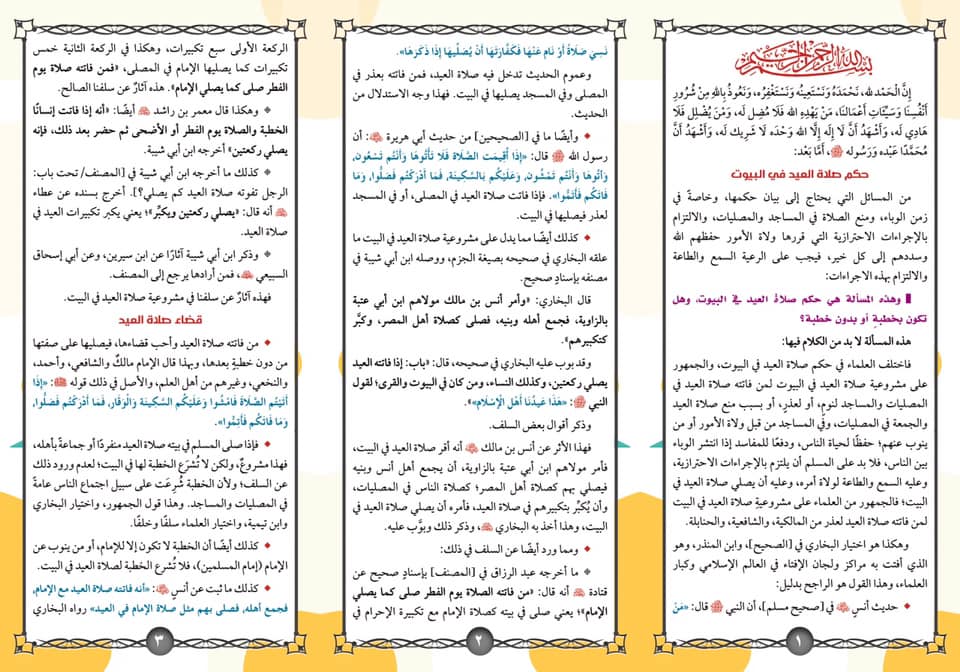 بسم الله الرحمن الرحيم
إِنَّ الْحَمْدَ لله، نَحْمَدُهُ وَنَسْتَعِينُهُ وَنَسْتَغْفِرُه، وَنَعُوذُ بِاللهِ مِنْ شُرُورِ
أَنْفُسِنَا وَسَيِّئَاتِ أَعْمَالِنَا، مَنْ يَهْدِهِ الله فَلَا مُضِل لَه، وَمَنْ يُضْلِل فَلَا
هَادِي لَه، وَأَشْهَدُ أَنَّ لَا إِلَهَ إِلَّا الله وَحْدَه لَا شَرِيكَ لَه، وَأَشْهَدُ أَنَّ
مُحَمَّدًا عَبْدَه وَرَسُوله ﷺ، أَمَّا بَعْد:
حكم صلاة العيد في البيوت
من المسائل التي يحتاج إلى بيان حكمها، وخاصة في
زمن الوباء، ومنع الصلاة في المساجد والمصليات، والالتزام
بالإجراءات الاحترازية التي قررها ولاة الأمور حفظهم الله
وسددهم إلى كل خير، فيجب على الرعية السمع والطاعة
والالتزام بهذه الاجراءات:
وهذه المسألة هي حكم صلاة العيد في البيوت، وهل
تكون بخطبةٍ أو بدون خطبة؟
هذه المسألة لا بد من الكلام فيها:
فاختلف العلماء في حكم صلاة العيد في البيوت، والجمهور
على مشروعية صلاة العيد في البيوت لمن فاتته صلاة العيد في
المصليات والمساجد لنومٍ، أو لعذرٍ، أو بسبب منع صلاة العيد
والجمعة في المصليات، وفي المساجد من قبل ولاة الأمر أو من
ينوب عنهم؛ حفظًا لحياة الناس، ودفعًا للمفاسد إذا انتشر الوباء
بين الناس، فلا بد على المسلم أن يلتزم بالإجراءات الاحترازية،
وعليه السمع والطاعة لولاة أمره، وعليه أن يصلي صلاة العيد في
البيت؛ فالجمهور من العلماء على مشروعية صلاة العيد في البيت
لمن فاتته صلاة العيد لعذر من المالكية، والشافعية، والحنابلة.
وهكذا هو اختيار البخاري في [الصحيح]، وابن المنذر، وهو
الذي أفتت به مراكز ولجان الإفتاء في العالم الإسلامي وكبار
العلماء، وهذا القول هو الراجح بدليل:
◆ حديث أنسٍ ﵁ في [صحيح مسلم]، أن النبي ﷺ قال: «مَنْ
١
نَسِيَ صَلَاةً أَوْ نَامَ عَنْهَا فَكَفَّارَتُهَا أَنْ يُصَلِّيَهَا إِذَا ذَكَرَهَا».
وعموم الحديث تدخل فيه صلاة العيد، فمن فاتته بعذر في
المصلى وفي المسجد يصليها في البيت. فهذا وجه الاستدلال من
الحديث.
◆ وأيضًا ما في [الصحيحين] من حديث أبي هريرة ﵁: أن
رسول الله ﷺ قال: «إِذَا أُقِيمَتِ الصَّلَاةُ فَلَا تَأْتُوهَا وَأَنْتُمْ تَسْعَوْنَ،
وَأْتُوهَا وَأَنْتُمْ تَمْشُونَ، وَعَلَيْكُم بِالسَّكِينَةِ، فَمَا أَدْرَكْتُمْ فَصَلُّوا، وَمَا
فَاتَكُمْ فَأَتِمُّوا». فإذا فاتت صلاة العيد في المصلى، أو في المسجد
لعذر فيصليها في البيت.
◆ كذلك أيضًا مما يدل على مشروعية صلاة العيد في البيت ما
علقه البخاري في صحيحه بصيغة الجزم، ووصله ابن أبي شيبة في
مصنفه بإسنادٍ صحيح.
قال البخاري: «وأمر أنس بن مالك مولاهم ابن أبي عتبة
بالزاوية، فجمع أهله وبنيه، فصلى كصلاة أهل المصر، وكبَّر
كتكبيرهم».
وقد بوب عليه البخاري في صحيحه، قال: «باب: إذا فاته العيد
يصلي ركعتين، وكذلك النساء، ومن كان في البيوت والقرى؛ لقول
النبي ﷺ: «هَذَا عِيدُنَا أَهْلَ الْإِسْلَامِ»».
وذكر أقوال بعض السلف.
فهذا الأثر عن أنس بن مالك ﵁ أنه أقر صلاة العيد في البيت،
فأمر مولاهم ابن أبي عتبة بالزاوية، أن يجمع أهل أنس وبنيه
فيصلي بهم كصلاة أهل المصر؛ كصلاة الناس في المصليات،
وأن يُكبِّر بتكبيرهم في صلاة العيد، فأمره أن يصلي صلاة العيد في
البيت، وهذا أخذ به البخاري ﵀، وذكر ذلك وبوَّب عليه.
◆ ومما ورد أيضًا عن السلف في ذلك:
◆ ما أخرجه عبد الرزاق في [المصنف] بإسنادٍ صحيح عن
قتادة ﵀ أنه قال: «من فاتته الصلاة يوم الفطر صلى كما يصلي
الإمام»؛ يعني صلى في بيته كصلاة الإمام مع تكبيرة الإحرام في
٢
الركعة الأولى سبع تكبيرات، وهكذا في الركعة الثانية خمس
تكبيرات كما يصليها الإمام في المصلى، «فمن فاتته صلاة يوم
الفطر صلى كما يصلي الإمام». هذه آثارٌ عن سلفنا الصالح.
◆ وهكذا قال معمر بن راشد ﵀ أيضًا: «أنه إذا فاتت إنسانًا
الخطبة والصلاة يوم الفطر أو الأضحى ثم حضر بعد ذلك، فإنه
يصلي ركعتين» أخرجه ابن أبي شيبة.
◆ كذلك ما أخرجه ابن أبي شيبة في [المصنف/ تحت باب:
الرجل تفوته صلاة العيد كم يصلي؟]. أخرج بسنده عن عطاء
﵀ أنه قال: «يصلي ركعتين ويكبِّر»؛ يعني يكبر تكبيرات العيد في
صلاة العيد.
◆ وذكر ابن أبي شيبة آثارًا عن ابن سيرين، وعن أبي إسحاق
السبيعي ﵀، فمن أرادها يرجع إلى المصنف.
فهذه آثارٌ عن سلفنا في مشروعية صلاة العيد في البيت.
قضاء صلاة العيد
◆ من فاتته صلاة العيد وأحب قضاءها، فيصليها على صفتها
من دون خطبةٍ بعدها، وبهذا قال الإمام مالكٌ والشافعي، وأحمد،
والنخعي، وغيرهم من أهل العلم، والأصل في ذلك قوله ﷺ: «إِذَا
أَتَيْتُم الصَّلَاةَ فَامْشُوا وَعَلَيْكُم السَّكِينَةَ وَالْوَقَار، فَمَا أَدْرَكْتُم فَصَلُّوا،
وَمَا فَاتَكُمْ فَأَتِمُّوا».
◆ فإذا صلى المسلم في بيته صلاة العيد منفردًا أو جماعةً بأهله،
فهذا مشروعٌ، ولكن لا تُشرَع الخطبة لها في البيت؛ لعدم ورود ذلك
عن السلف؛ ولأن الخطبة شُرِعَت على سبيل اجتماع الناس عامةً
في المصليات والمساجد. وهذا قول الجمهور، واختيار البخاري
وابن تيمية، واختيار العلماء سلفًا وخلفًا.
◆ كذلك أيضًا أن الخطبة لا تكون إلا للإمام، أو من ينوب عن
الإمام (إمام المسلمين)، فلا تُشرع الخطبة لصلاة العيد في البيت.
◆ كذلك ما ثبت عن أنسٍ ﵁: «أنه فاتته صلاة العيد مع الإمام،
فجمع أهله، فصلى بهم مثل صلاة الإمام في العيد» رواه البخاري
٣